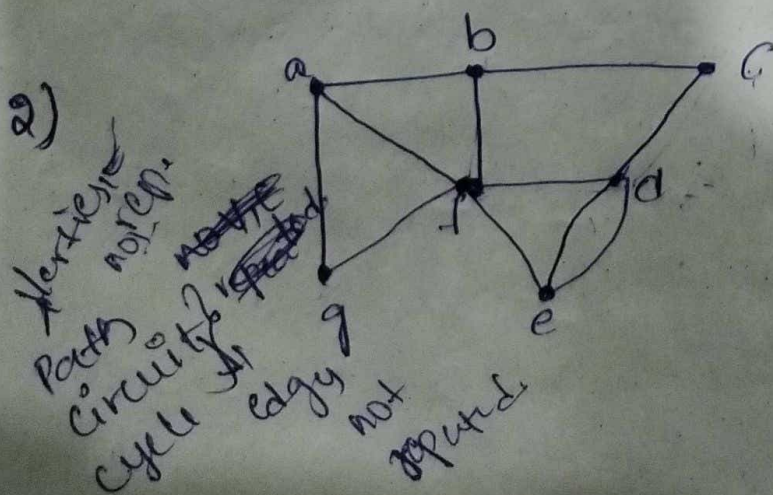 2)
a
b
c
f
d
g
e
Verties
not rep.
Path
circuit
cycle
edgy
not
repated.